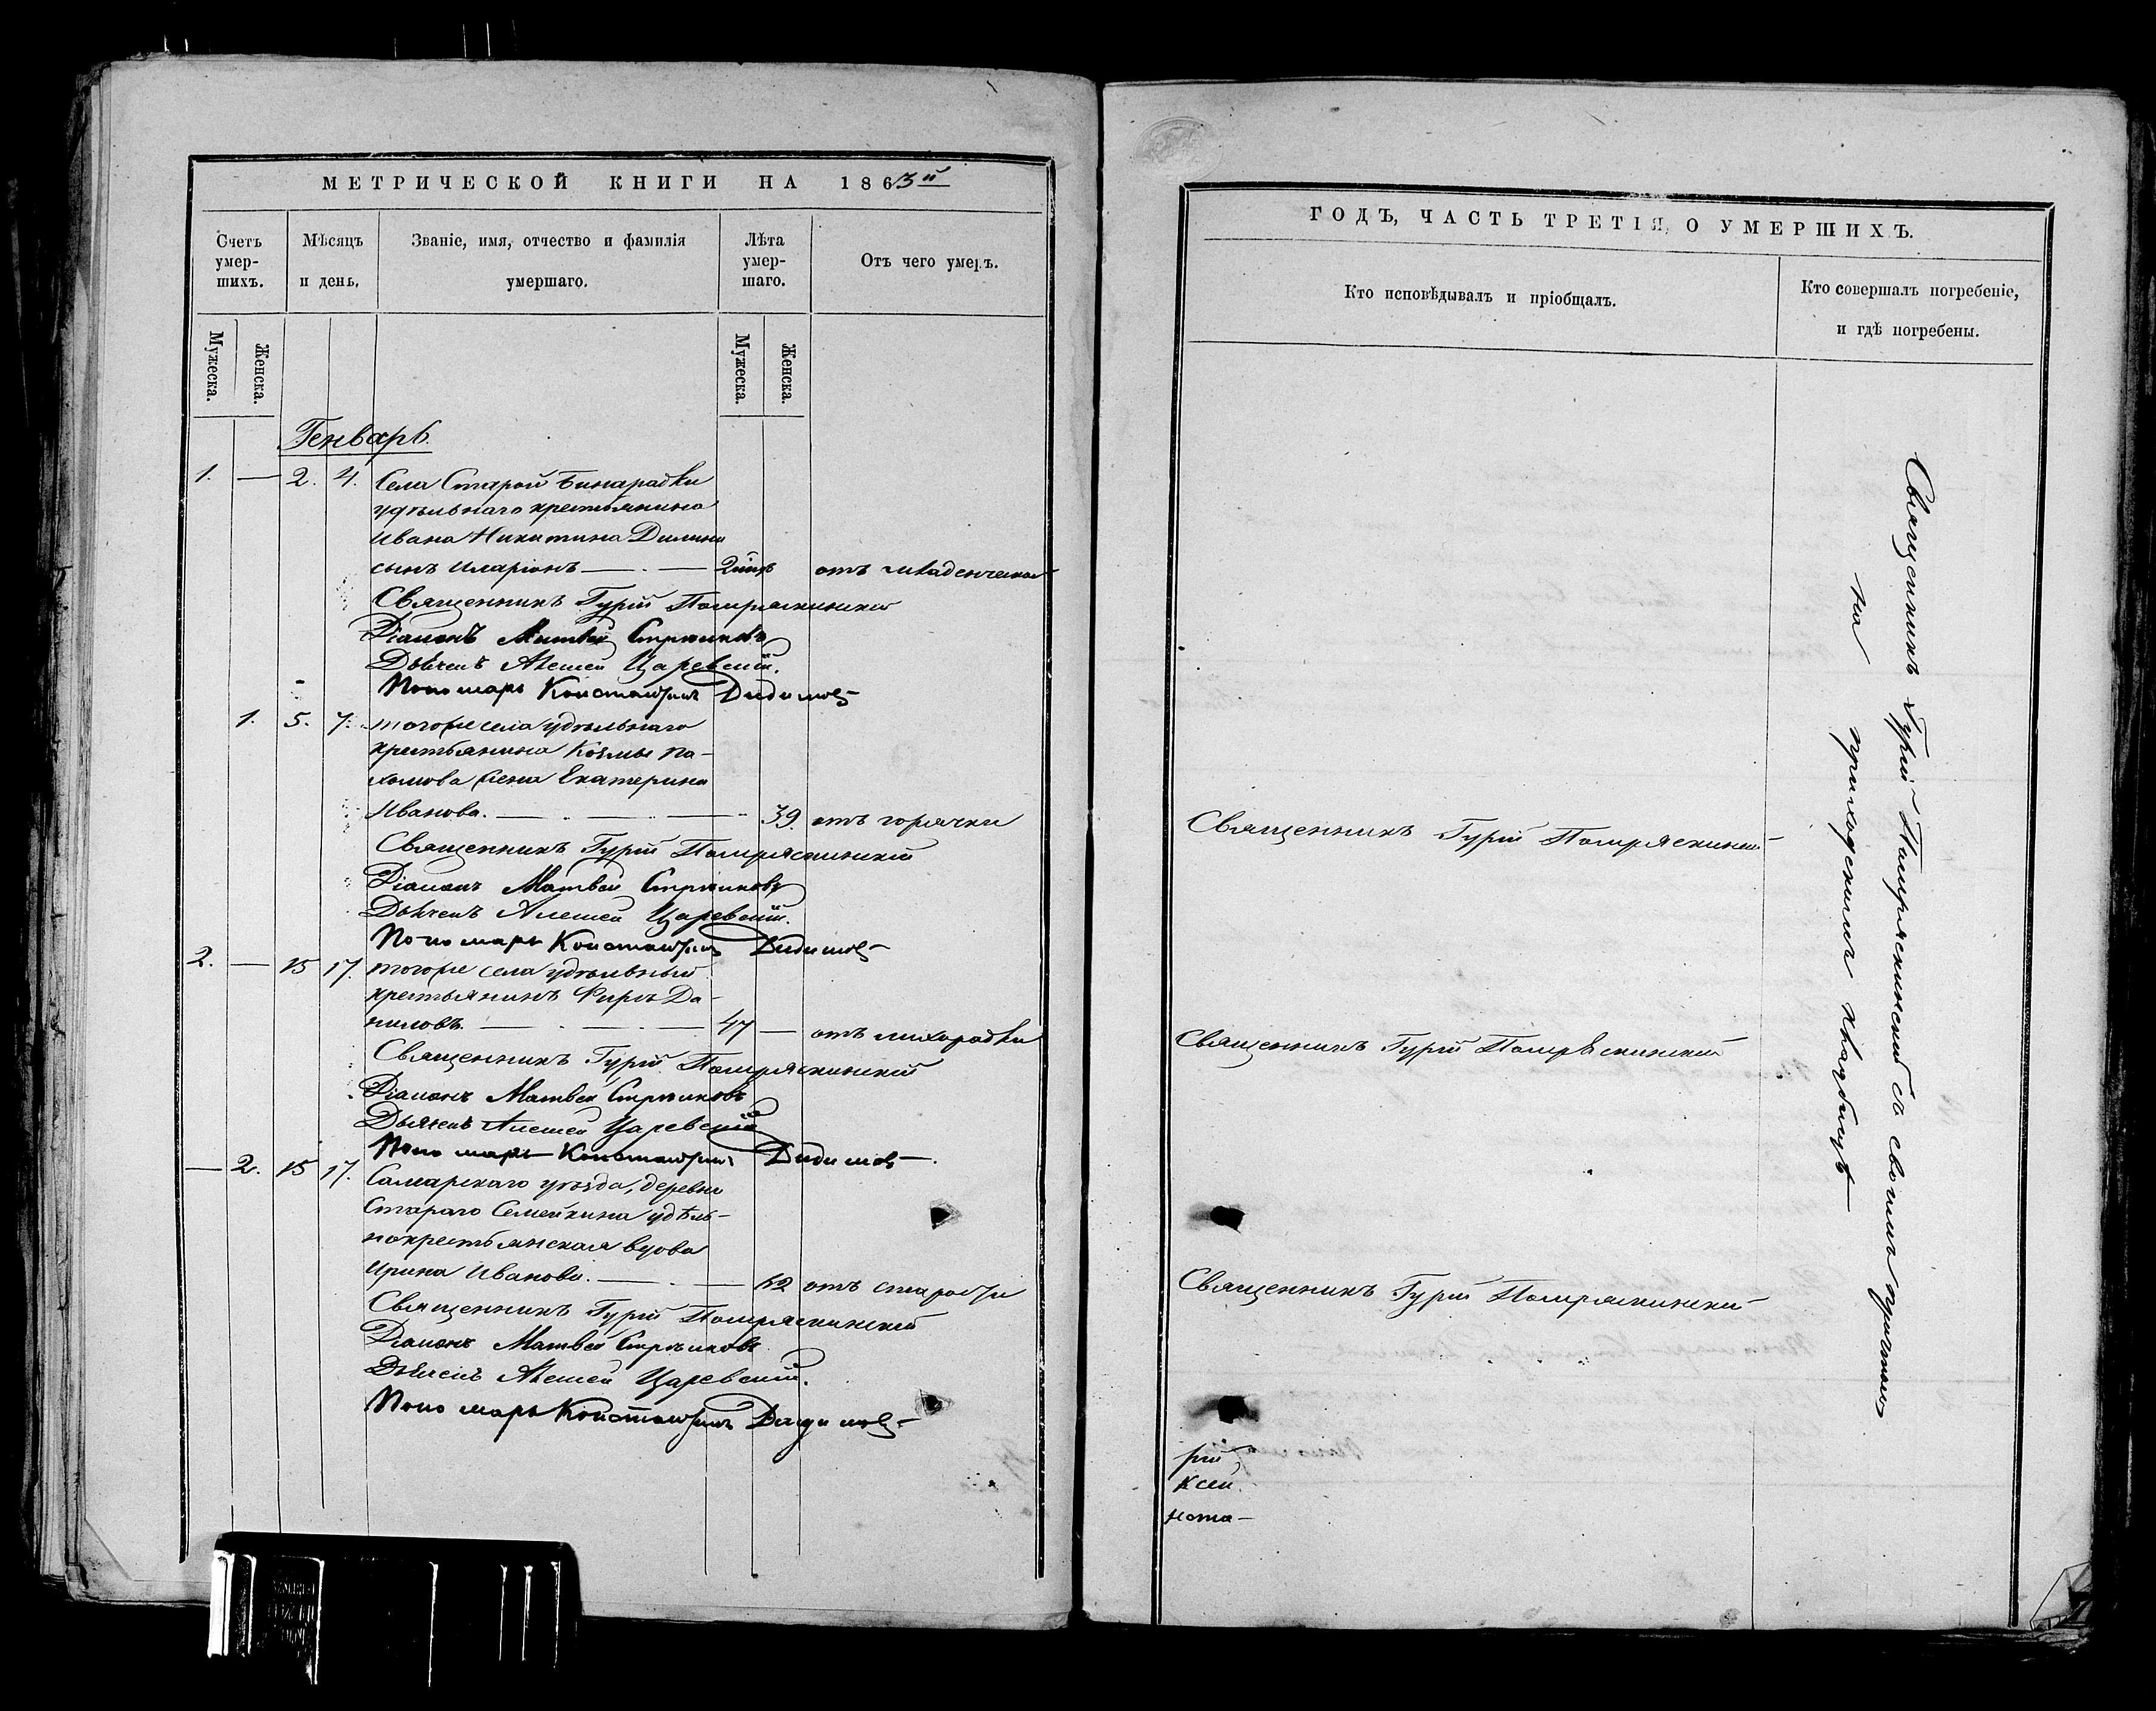 МЕТРИЧЕСКОЙ КНИГИ НА 1863й
Счетъ умер-шихъ.
Мѣсяцъ и день.
Званіе, имя, отчество и фамилія умершаго.
Лѣта умер-шаго.
Отъ чего умеръ.
Мужеска.
Женска.
Мужеска.
Женска.
Генварь.
1. — 2. 4. Села Старой Бинарадки
удѣльнаго крестьянина
Ивана Никитина
сынъ Иларіонъ — . — отъ младенческой
Священникъ Гурій Помряскинскій
Діаконъ Матвей Стрѣлковъ
Дьячекъ Алексей Царевскій.
Пономарь Константинъ Дидимовъ
1. 5. 7. тогоже села удѣльнаго
крестьянина Козмы Па-
хомова жена Екатерина
Иванова. — . — . — 39. отъ горячки
Священникъ Гурій Помряскинскій
Діаконъ Матвей Стрѣлковъ
Дьячекъ Алексей Царевскій.
Пономарь Константинъ Дидимовъ
2. — 15 17. тогоже села удѣльный
крестьянинъ Фирсъ Да-
ниловъ. — . — . — 47 — отъ лихорадки
Священникъ Гурій Помряскинскій
Діаконъ Матвей Стрѣлковъ
Дьячекъ Алексей Царевскій
Пономарь Константинъ Дидимовъ
— 2. 15 17. Самарскаго уѣзда, деревни
Стараго Семейкина удѣль-
нокрестьянская вдова
Ирина Иванова. — . — 62 отъ старости
Священникъ Гурій Помряскинскій
Діаконъ Матвей Стрѣлковъ
Дьячекъ Алексей Царевскій.
Пономарь Константинъ Дидимовъ
ГОДЪ, ЧАСТЬ ТРЕТІЯ, О УМЕРШИХЪ.
Кто исповѣдывалъ и пріобщалъ.
Кто совершалъ погребеніе,
и гдѣ погребены.
Священникъ Гурій Помряскинскій
Священникъ Гурій Помряскинскій
Священникъ Гурій Помряскинскій
рій
ксей
нота-
Священникъ Гурій Помряскинскій съ своимъ причтомъ
на приходскомъ кладбищѣ